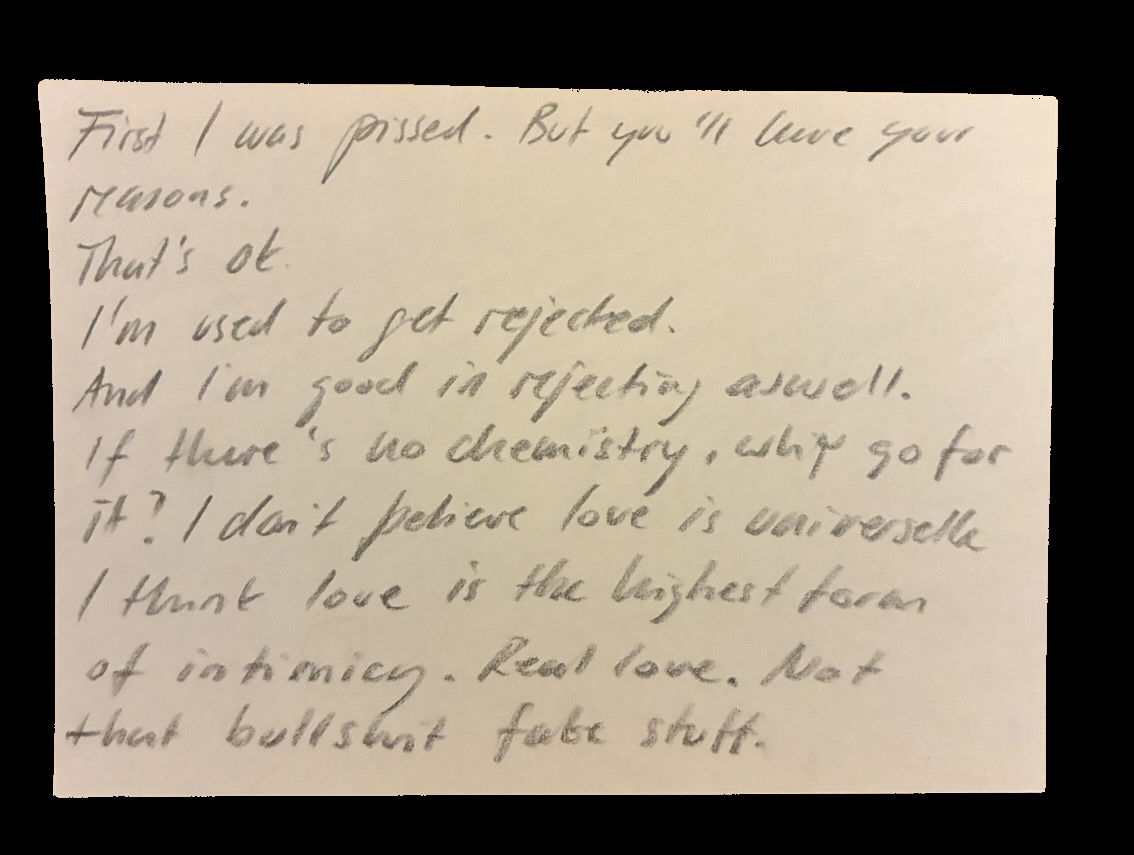 First I was pissed. But you'll have your
reasons.
That's ok.
I'm used to get rejected.
And I'm good in rejecting aswell.
If there's no chemistry, why go for
it? I don't believe love is universelle
I think love is the highest form
of intimicy. Real love. Not
that bullshit fake stuff.